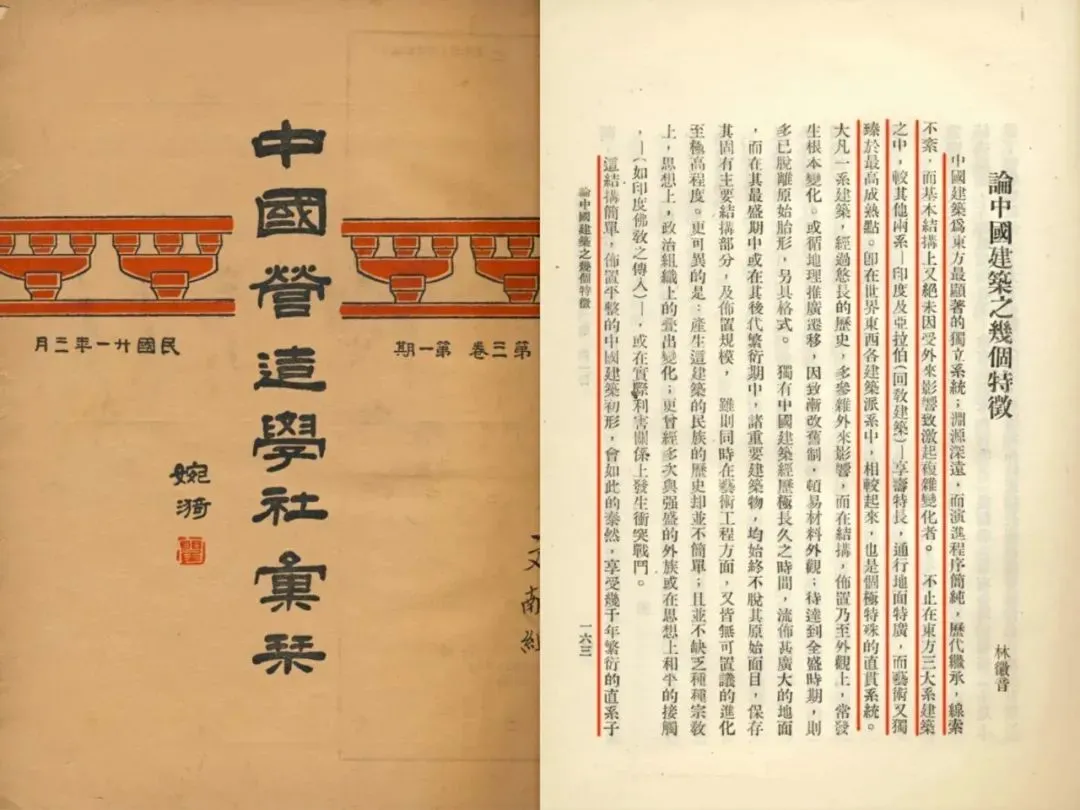 中國營造學社彙栞
第三卷 第一期
民國廿一年三月
論中國建築之幾個特徵
林徽音
中國建築爲東方最顯著的獨立系統；淵源深遠，而演進程序簡純，歷代繼承，線索
不紊，而基本結搆上又絕未因受外來影響致激起複雜變化者。　不止在東方三大系建築
之中，較其他兩系—印度及亞拉伯（回敎建築）—享壽特長，通行地面特廣，而藝術又獨
臻於最高成熟點。卽在世界東西各建築派系中，相較起來，也是個極特殊的直貫系統。
大凡一系建築，經過悠長的歷史，多參雜外來影響，而在結搆，佈置乃至外觀上，常發
生根本變化。或循地理推廣遷移，因致漸改舊制，頓易材料外觀；待達到全盛時期，則
多已脫離原始胎形，另具格式。　獨有中國建築經歷極長久之時間，流佈甚廣大的地面
，而在其最盛期中或在其後代繁衍期中，諸重要建築物，均始終不脫其原始面目，保存
其固有主要結搆部分，及佈置規模，　雖則同時在藝術工程方面，又皆無可置議的進化
至極高程度。更可異的是：產生這建築的民族的歷史却並不簡單；且並不缺乏種種宗敎
上，思想上，政治組織上的叠出變化；更曾經多次與强盛的外族或在思想上和平的接觸
，—（如印度佛敎之傳入）—，或在實際利害關係上發生衝突戰鬥。
這結搆簡單，佈置平整的中國建築初形，會如此的泰然，享受幾千年繁衍的直系子
論中國建築之幾個特徵
一六三